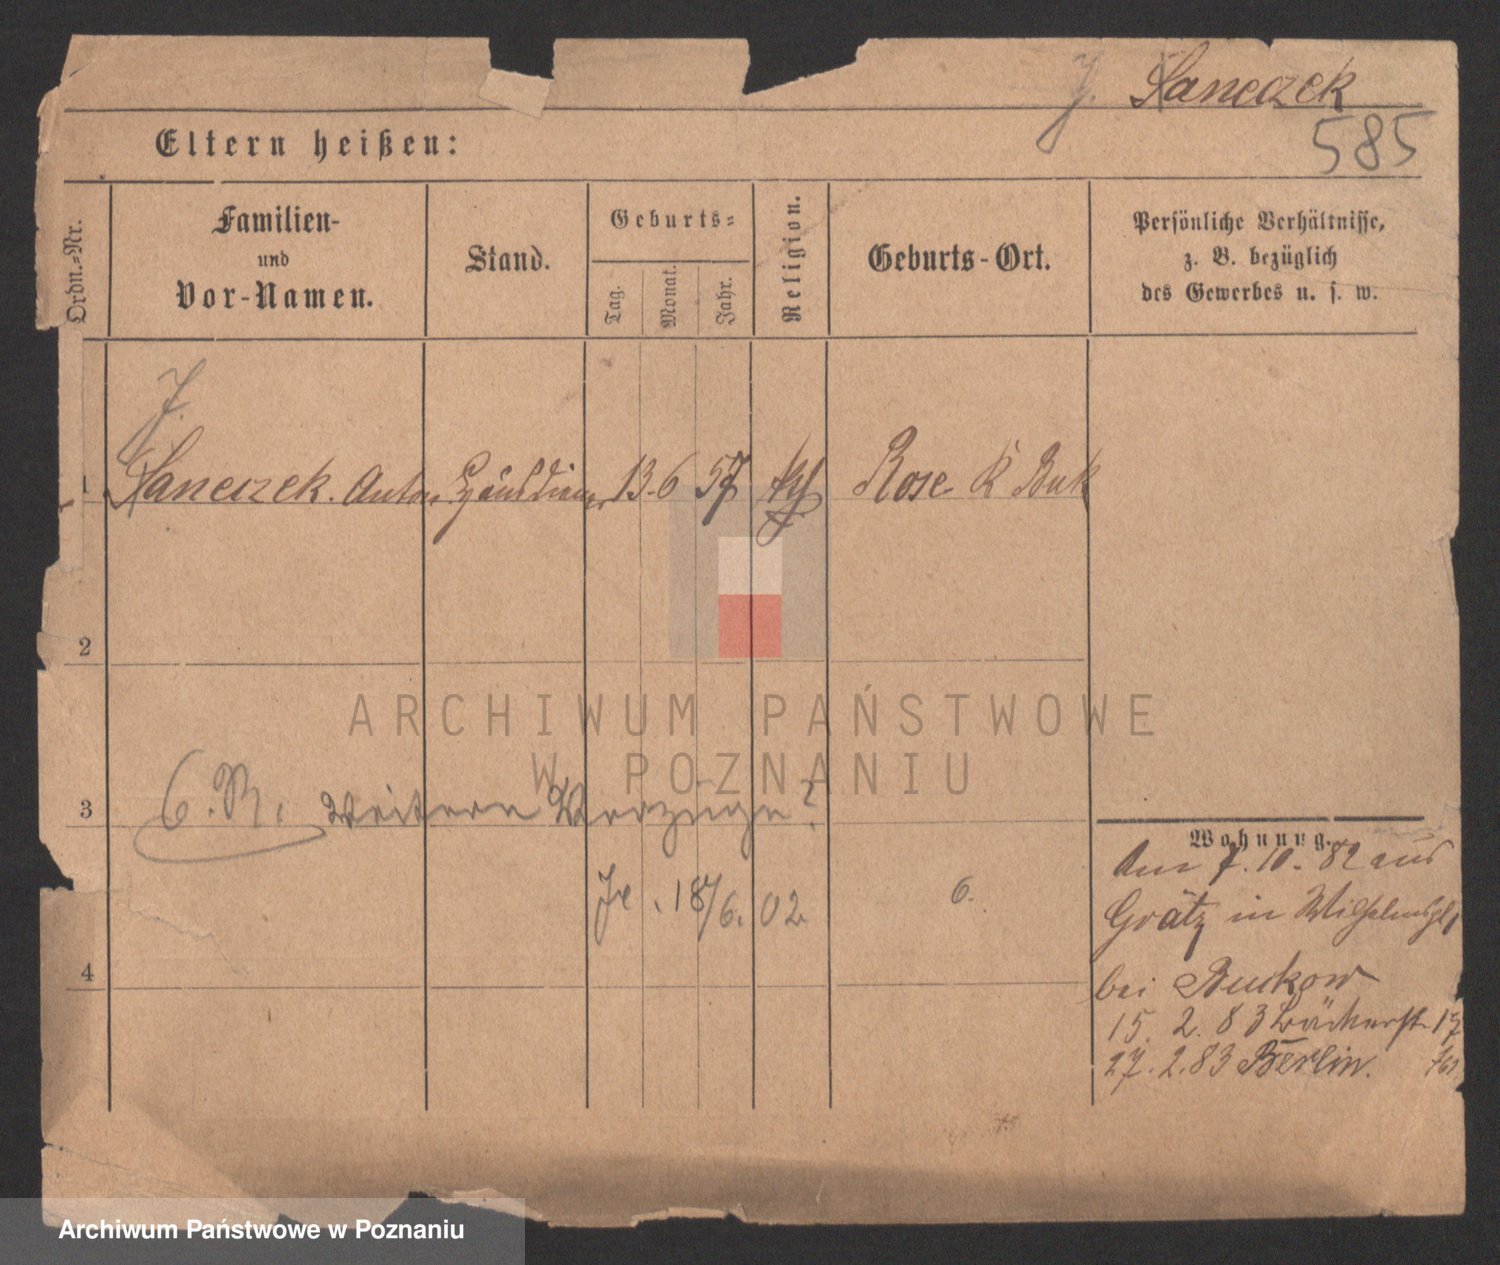 J. Haneczek
585
Eltern heißen:
Ordn.-Nr.
Familien-
und
Vor-Namen.
Stand.
Geburts-
Tag.
Monat.
Jahr.
Religion.
Geburts-Ort.
Persönliche Verhältnisse,
z. B. bezüglich
des Gewerbes u. s. w.
J.
1 Haneczek. Anton 13. 6 57 kth Rose K Buk
2
ARCHIWUM PAŃSTWOWE
W POZNANIU
3 6. R. weitere Verzüge?
Wohnung.
Am 7. 10. 82 aus
18/6. 02 6.
Grätz in
4
bei Buckow
15. 2. 83 Bäckerstr 17
27. 2. 83 Berlin.
Archiwum Państwowe w Poznaniu